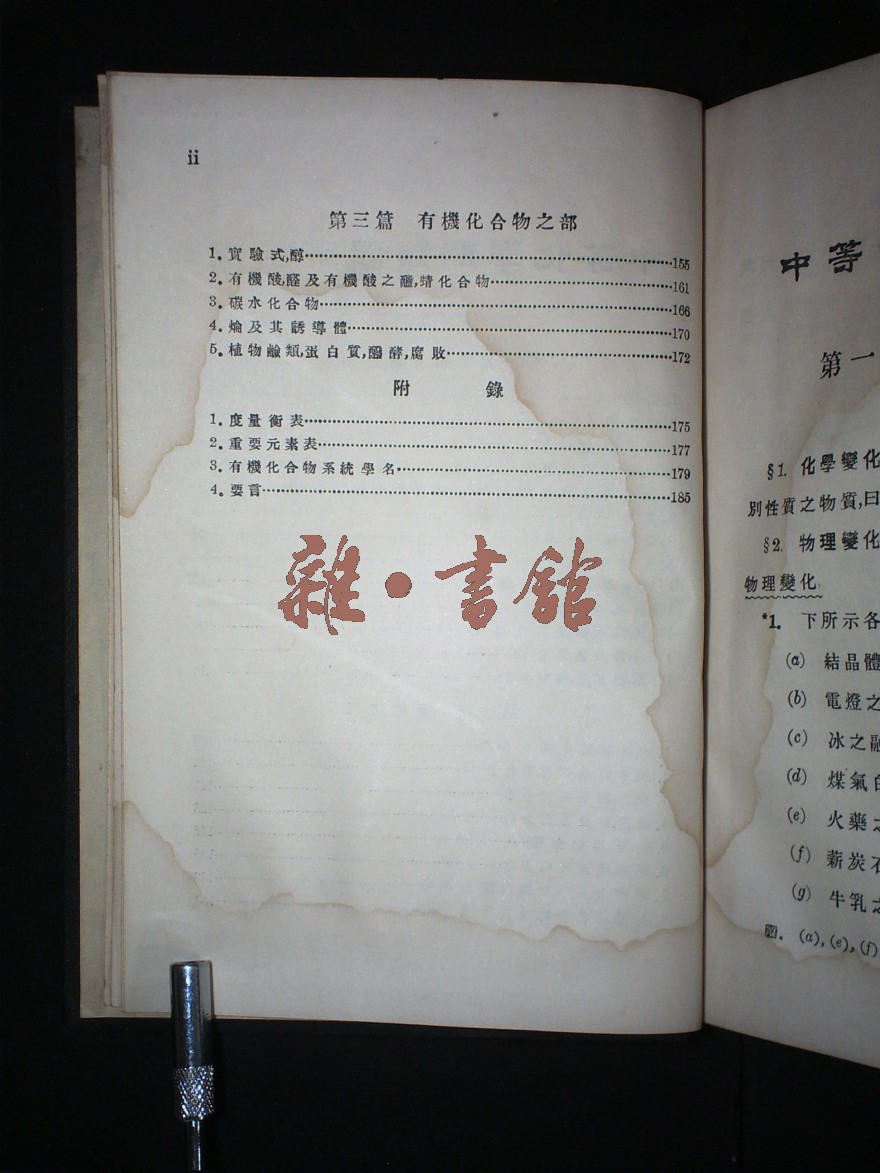 ii
第三篇 有機化合物之部
1. 實驗式,醇……155
2. 有機酸,醛及有機酸之鹽,化合物……161
3. 碳水化合物……166
4. 及其誘導體……170
5. 植物鹼類,蛋白質,醱酵,腐敗……172
附 錄
1. 度量衡表……175
2. 重要元素表……177
3. 有機化合物系統學名……179
4. 要言……185
雜·書館
中等
第一
§1. 化學變化
別性質之物質,曰
§2. 物理變化
物理變化
*1. 下所示各
(a) 結晶體
(b) 電燈之
(c) 冰之融
(d) 煤氣
(e) 火藥之
(f) 薪炭石
(g) 牛乳之
(a),(e),(f)